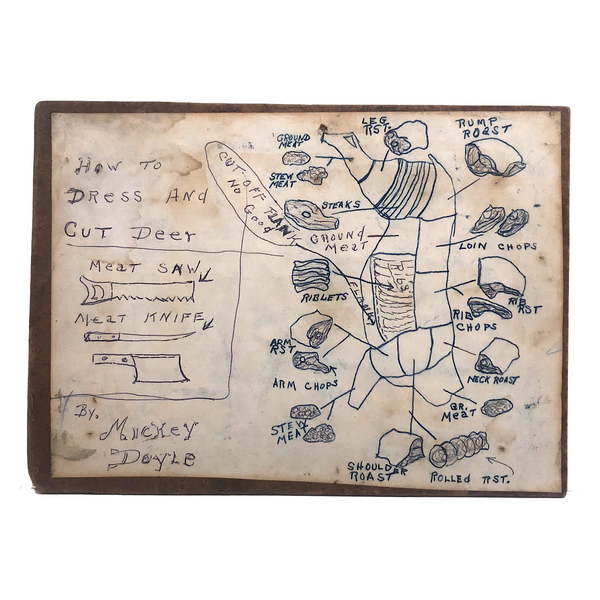 How To
Dress And
Cut Deer
Meat Saw
Meat Knife
By,
Mickey
Doyle
CUT-OFF FLANK
NO GOOD
GROUND
MEAT
STEW
MEAT
STEAKS
GROUND
MEAT
RIBLETS
ARM
RST
ARM CHOPS
STEW
MEAT
SHOULDER
ROAST
LEG
RST.
RUMP
ROAST
LOIN CHOPS
RIBS
FLANK
RIB
RST
RIB
CHOPS
NECK ROAST
GR.
MEAT
ROLLED RST.